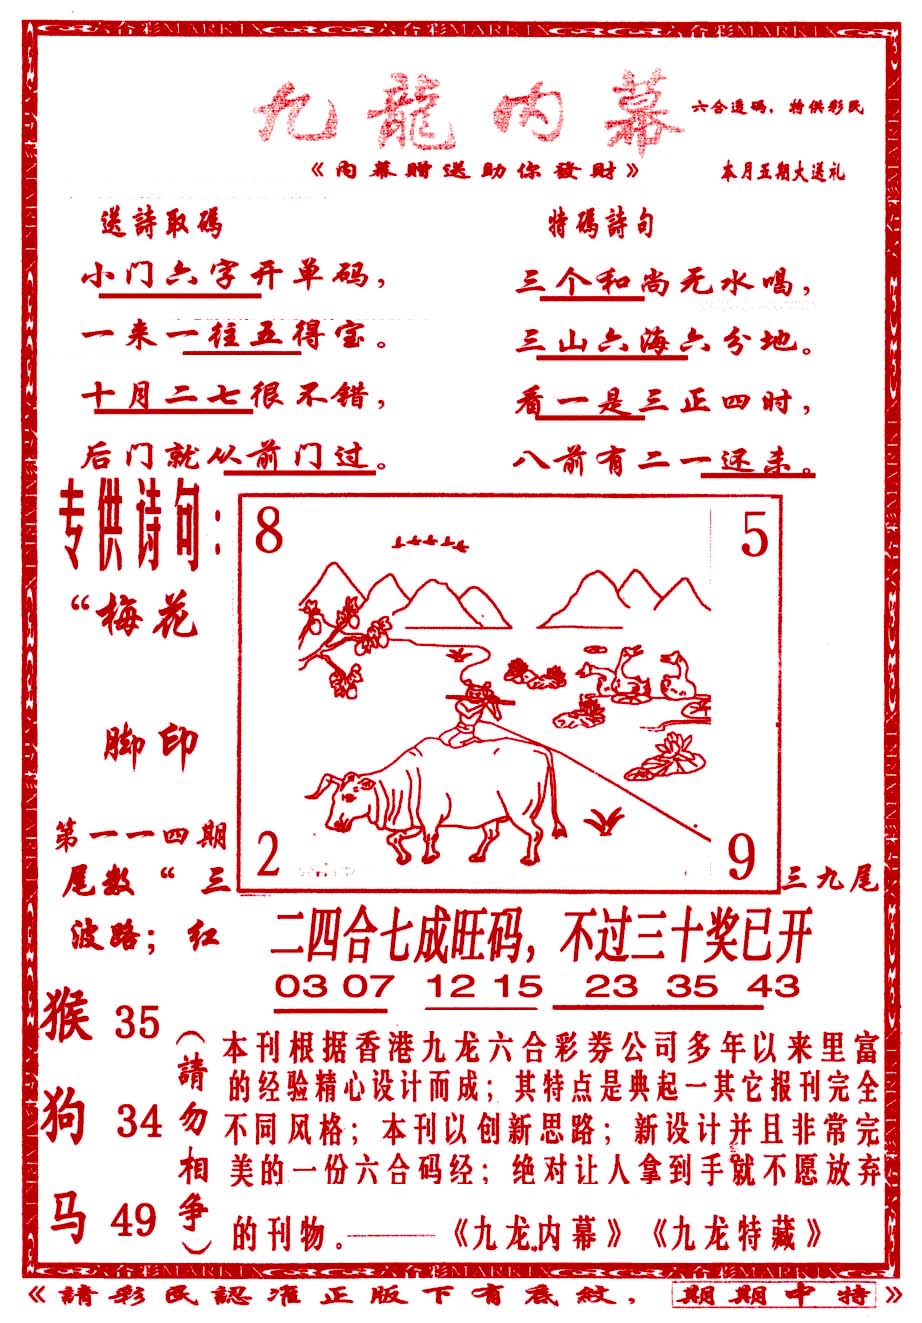 六合彩MARK
九龍内幕
六合透码，特供彩民
《内幕赠送助你發財》
本月五期大送礼
送詩取碼
小门六字开单码，
一来一往五得宝。
十月二七很不错，
后门就从前门过。
特碼詩句
三个和尚无水喝，
三山六海六分地。
看一是三正四时，
八前有二一还来。
专供诗句：
“梅花
脚印
第一一四期
8
5
2
9
尾数“三
三九尾
波路；红
二四合七成旺码，不过三十奖已开
03 07 12 15 23 35 43
猴 35
狗 34
马 49
（請勿相争）
本刊根据香港九龙六合彩券公司多年以来里富
的经验精心设计而成；其特点是典起一其它报刊完全
不同风格；本刊以创新思路；新设计并且非常完
美的一份六合码经；绝对让人拿到手就不愿放弃
的刊物。——《九龙内幕》《九龙特藏》
六合彩MARK
《請彩民認准正版下有底紋，期期中特》